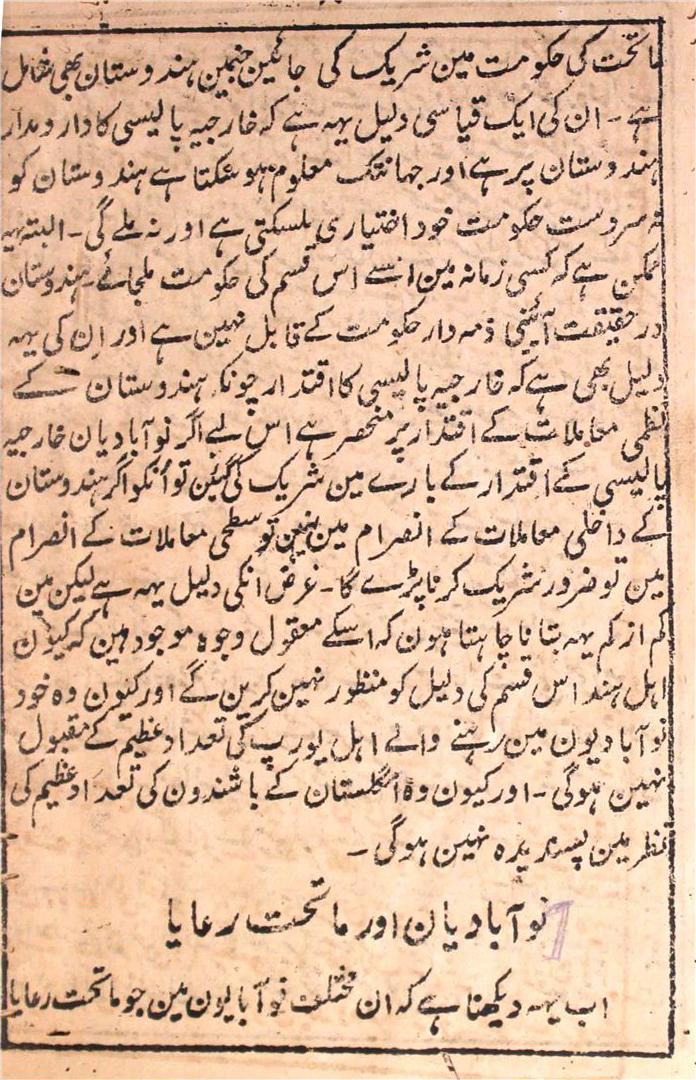 ماتحت کی حکومت مین شریک کی جائین جنمین ہندوستان بھی شامل
ہے ۔ ان کی ایک قیاسی دلیل یہہ ہے کہ خارجیہ پالیسی کا دار و مدار
ہندوستان پر ہے اور جہانتک معلوم ہوسکتا ہے ہندوستان کو
نہ سردست حکومت خود اختیاری ملسکتی ہے اور نہ ملے گی ۔ البتہ یہہ
ممکن ہے کہ کسی زمانہ مین اسے اس قسم کی حکومت ملجائے ۔ ہندوستان
درحقیقت آئینی ذمہ دار حکومت کے قابل نہین ہے اور اِن کی یہہ
دلیل بھی ہے کہ خارجیہ پالیسی کا اقتدار چونکہ ہندوستان کے
نظمی معاملات کے اقتدار پر منحصر ہے اس لیے اگر نوآبادیان خارجیہ
پالیسی کے اقتدار کے بارے مین شریک کی گئین تو اُنکو اگر ہندوستان
کے داخلی معاملات کے انصرام مین نہین تو سطحی معاملات کے انصرام
مین تو ضرور شریک کرنا پڑے گا ۔ غرض انکی دلیل یہہ ہے لیکن مین
کم از کم یہہ بتانا چاہتا ہون کہ اسکے معقول وجوہ موجود ہین کہ کیون
اہل ہند اس قسم کی دلیل کو منظور نہین کرین گے اور کیون وہ خود
نوآبادیون مین رہنے والے اہل یورپ کی تعداد عظیم کے مقبول
نہین ہوگی ۔ اور کیون وہ انگلستان کے باشندون کی تعداد عظیم کی
نظر مین پسندیدہ نہین ہوگی ۔
نوآبادیان اور ماتحت رعایا
اب یہہ دیکھنا ہے کہ ان مختلف نوآبایون مین جو ماتحت رعایا